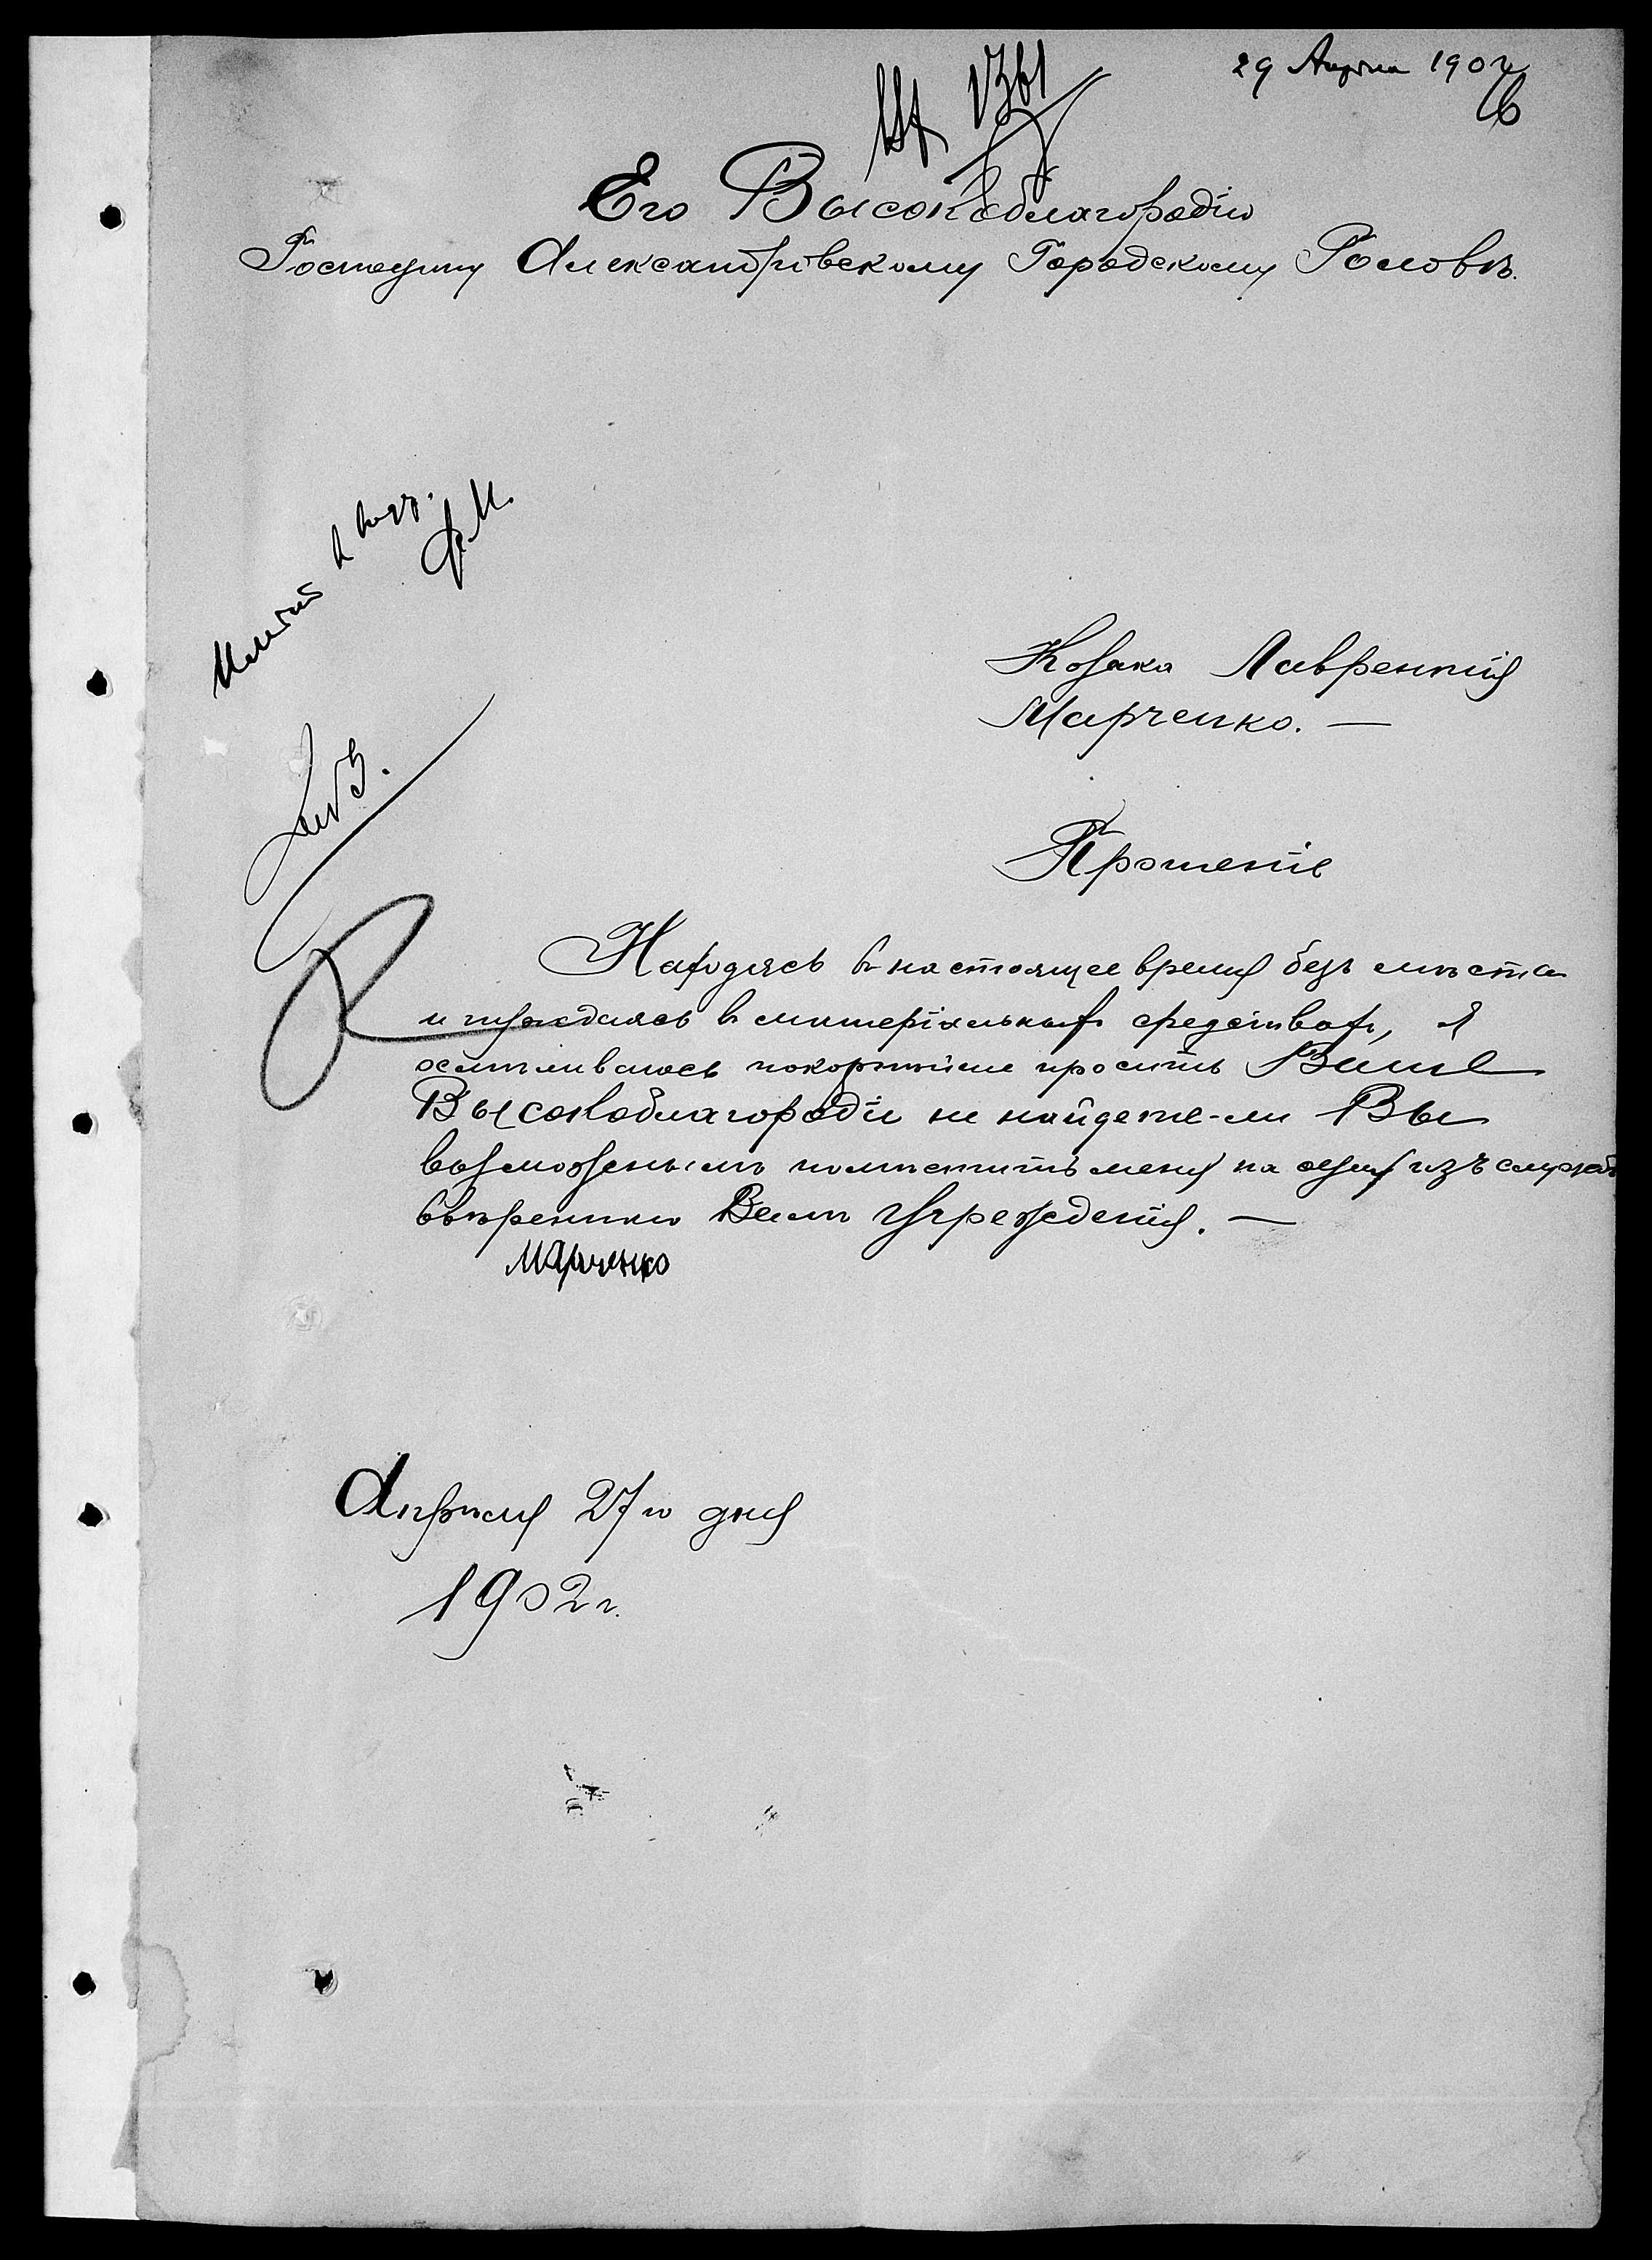 29 Апрѣля 1902
6
1361
Его Высокоблагородію
Господину Александровскому Городскому Головѣ.
Козака Лаврентія
Марченко. —
Прошеніе
Находясь в настоящее время безъ мѣста
и нуждаясь в матеріальных средствах, я
осмѣливаюсь покорнѣйше просить Ваше
Высокоблагородіе не найдете-ли Вы
возможнымъ помѣстить меня на одну изъ служб
ввѣреннаго Вам Учрежденія. —
Марченко
Апрѣля 27 го дня
1902 г.